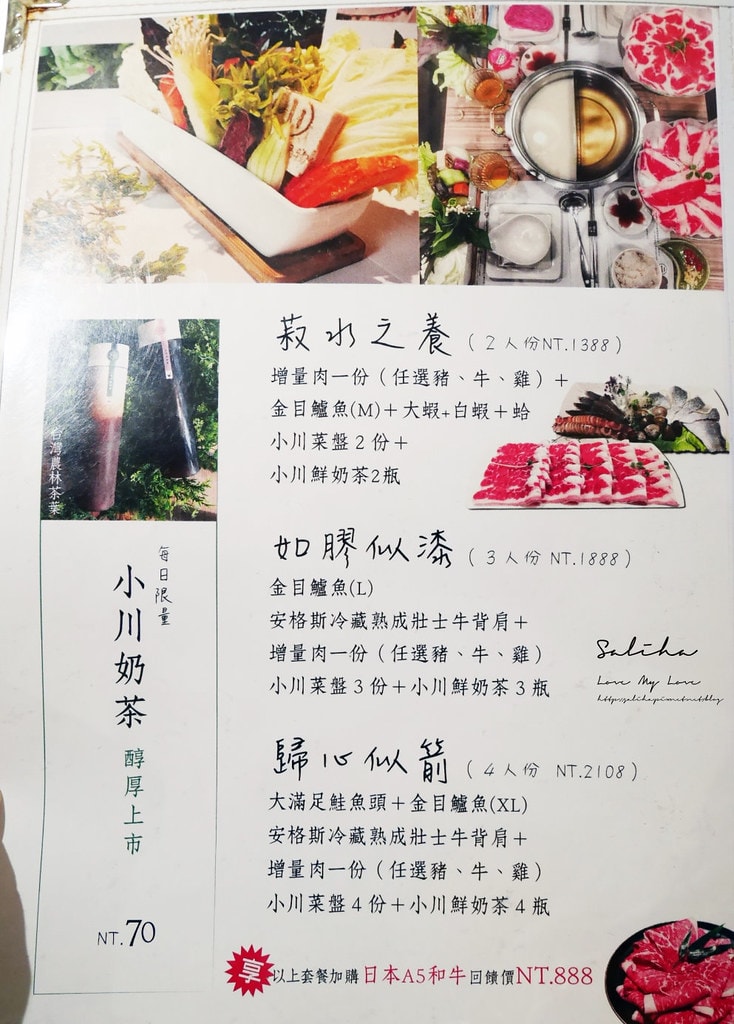 菽水之養（2人份NT.1388）
增量肉一份（任選豬、牛、雞）＋
金目鱸魚(M)＋大蝦+白蝦＋蛤
小川菜盤2份＋
小川鮮奶茶2瓶
如膠似漆（3人份 NT.1888）
金目鱸魚(L)
安格斯冷藏熟成壯士牛背肩＋
增量肉一份（任選豬、牛、雞）
小川菜盤3份＋小川鮮奶茶3瓶
歸心似箭（4人份 NT.2108）
大滿足鮭魚頭＋金目鱸魚(XL)
安格斯冷藏熟成壯士牛背肩＋
增量肉一份（任選豬、牛、雞）
小川菜盤4份＋小川鮮奶茶4瓶
享以上套餐加購日本A5和牛回饋價NT.888
台灣農林茶葉
每日限量
小川奶茶
醇厚上市
NT.70
Saliha
Love My Love